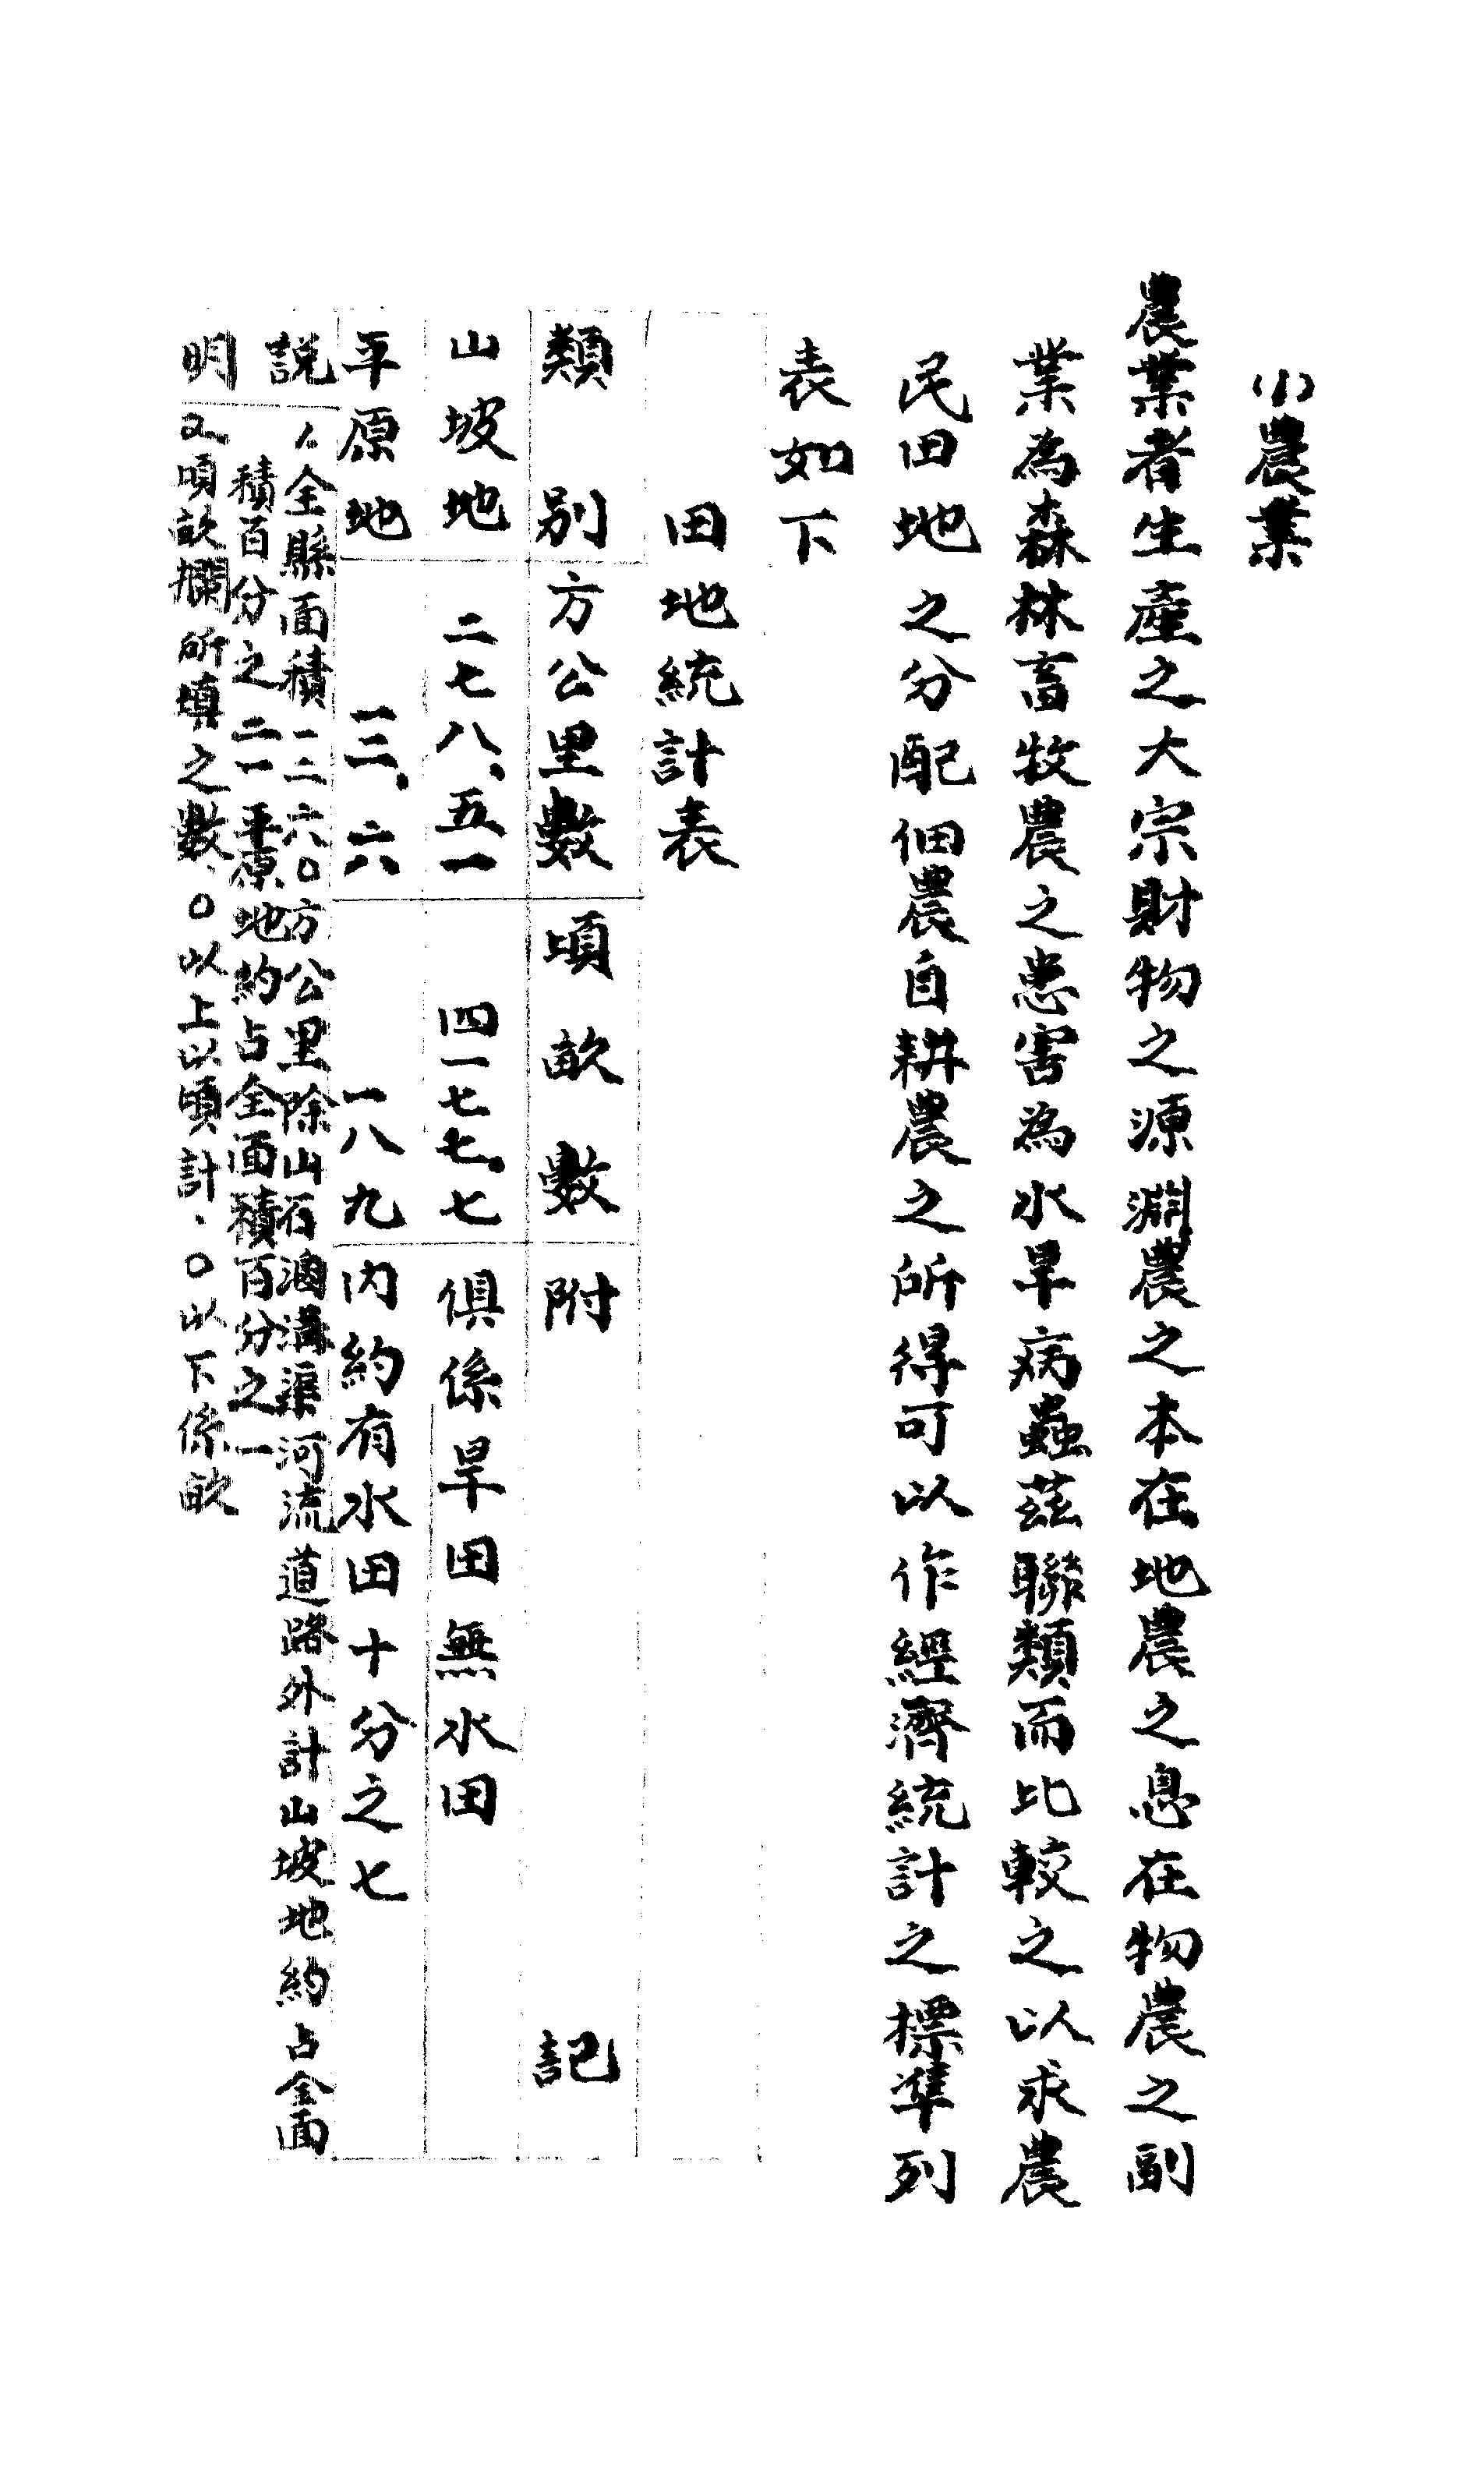 (1)農業
農業者生產之大宗財物之源淵農之本在地農之息在物農之副
業為森林畜牧農之患害為水旱病蟲茲聯類而比較之以求農
民田地之分配佃農自耕農之所得可以作經濟統計之標準列
表如下
田地統計表
類別 方公里數 頃畝數 附記
山坡地 二七八、五一 四一七七.七 俱係旱田無水田
平原地 一二.六 一八九 內約有水田十分之七
說明
1.全縣面積一二六〇方公里除山石涵溝渠河流道路外計山坡地約占全面
積百分之二一平原地約占全面積百分之一
2.頃畝欄所填之數、〇以上以頃計、〇以下係畝